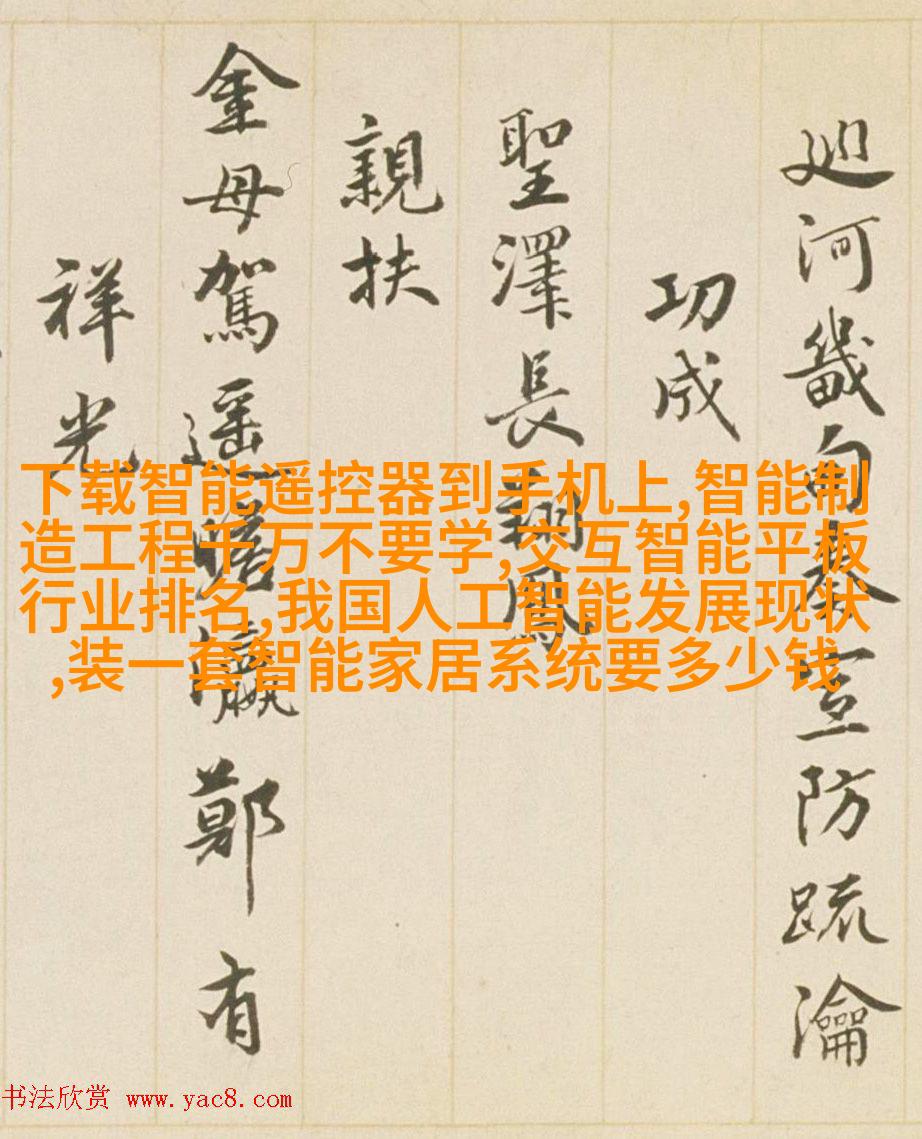 廵河畿甸奏宣防疏瀹
功成
聖澤長翔鳳
親扶
金母駕遥瞻鄭有
祥光
下载智能遥控器到手机上,智能制
造工程千万不要学,交互智能平板
行业排名,我国人工智能发展现状
,装一套智能家居系统要多少钱
书法欣赏 www.yac8.com